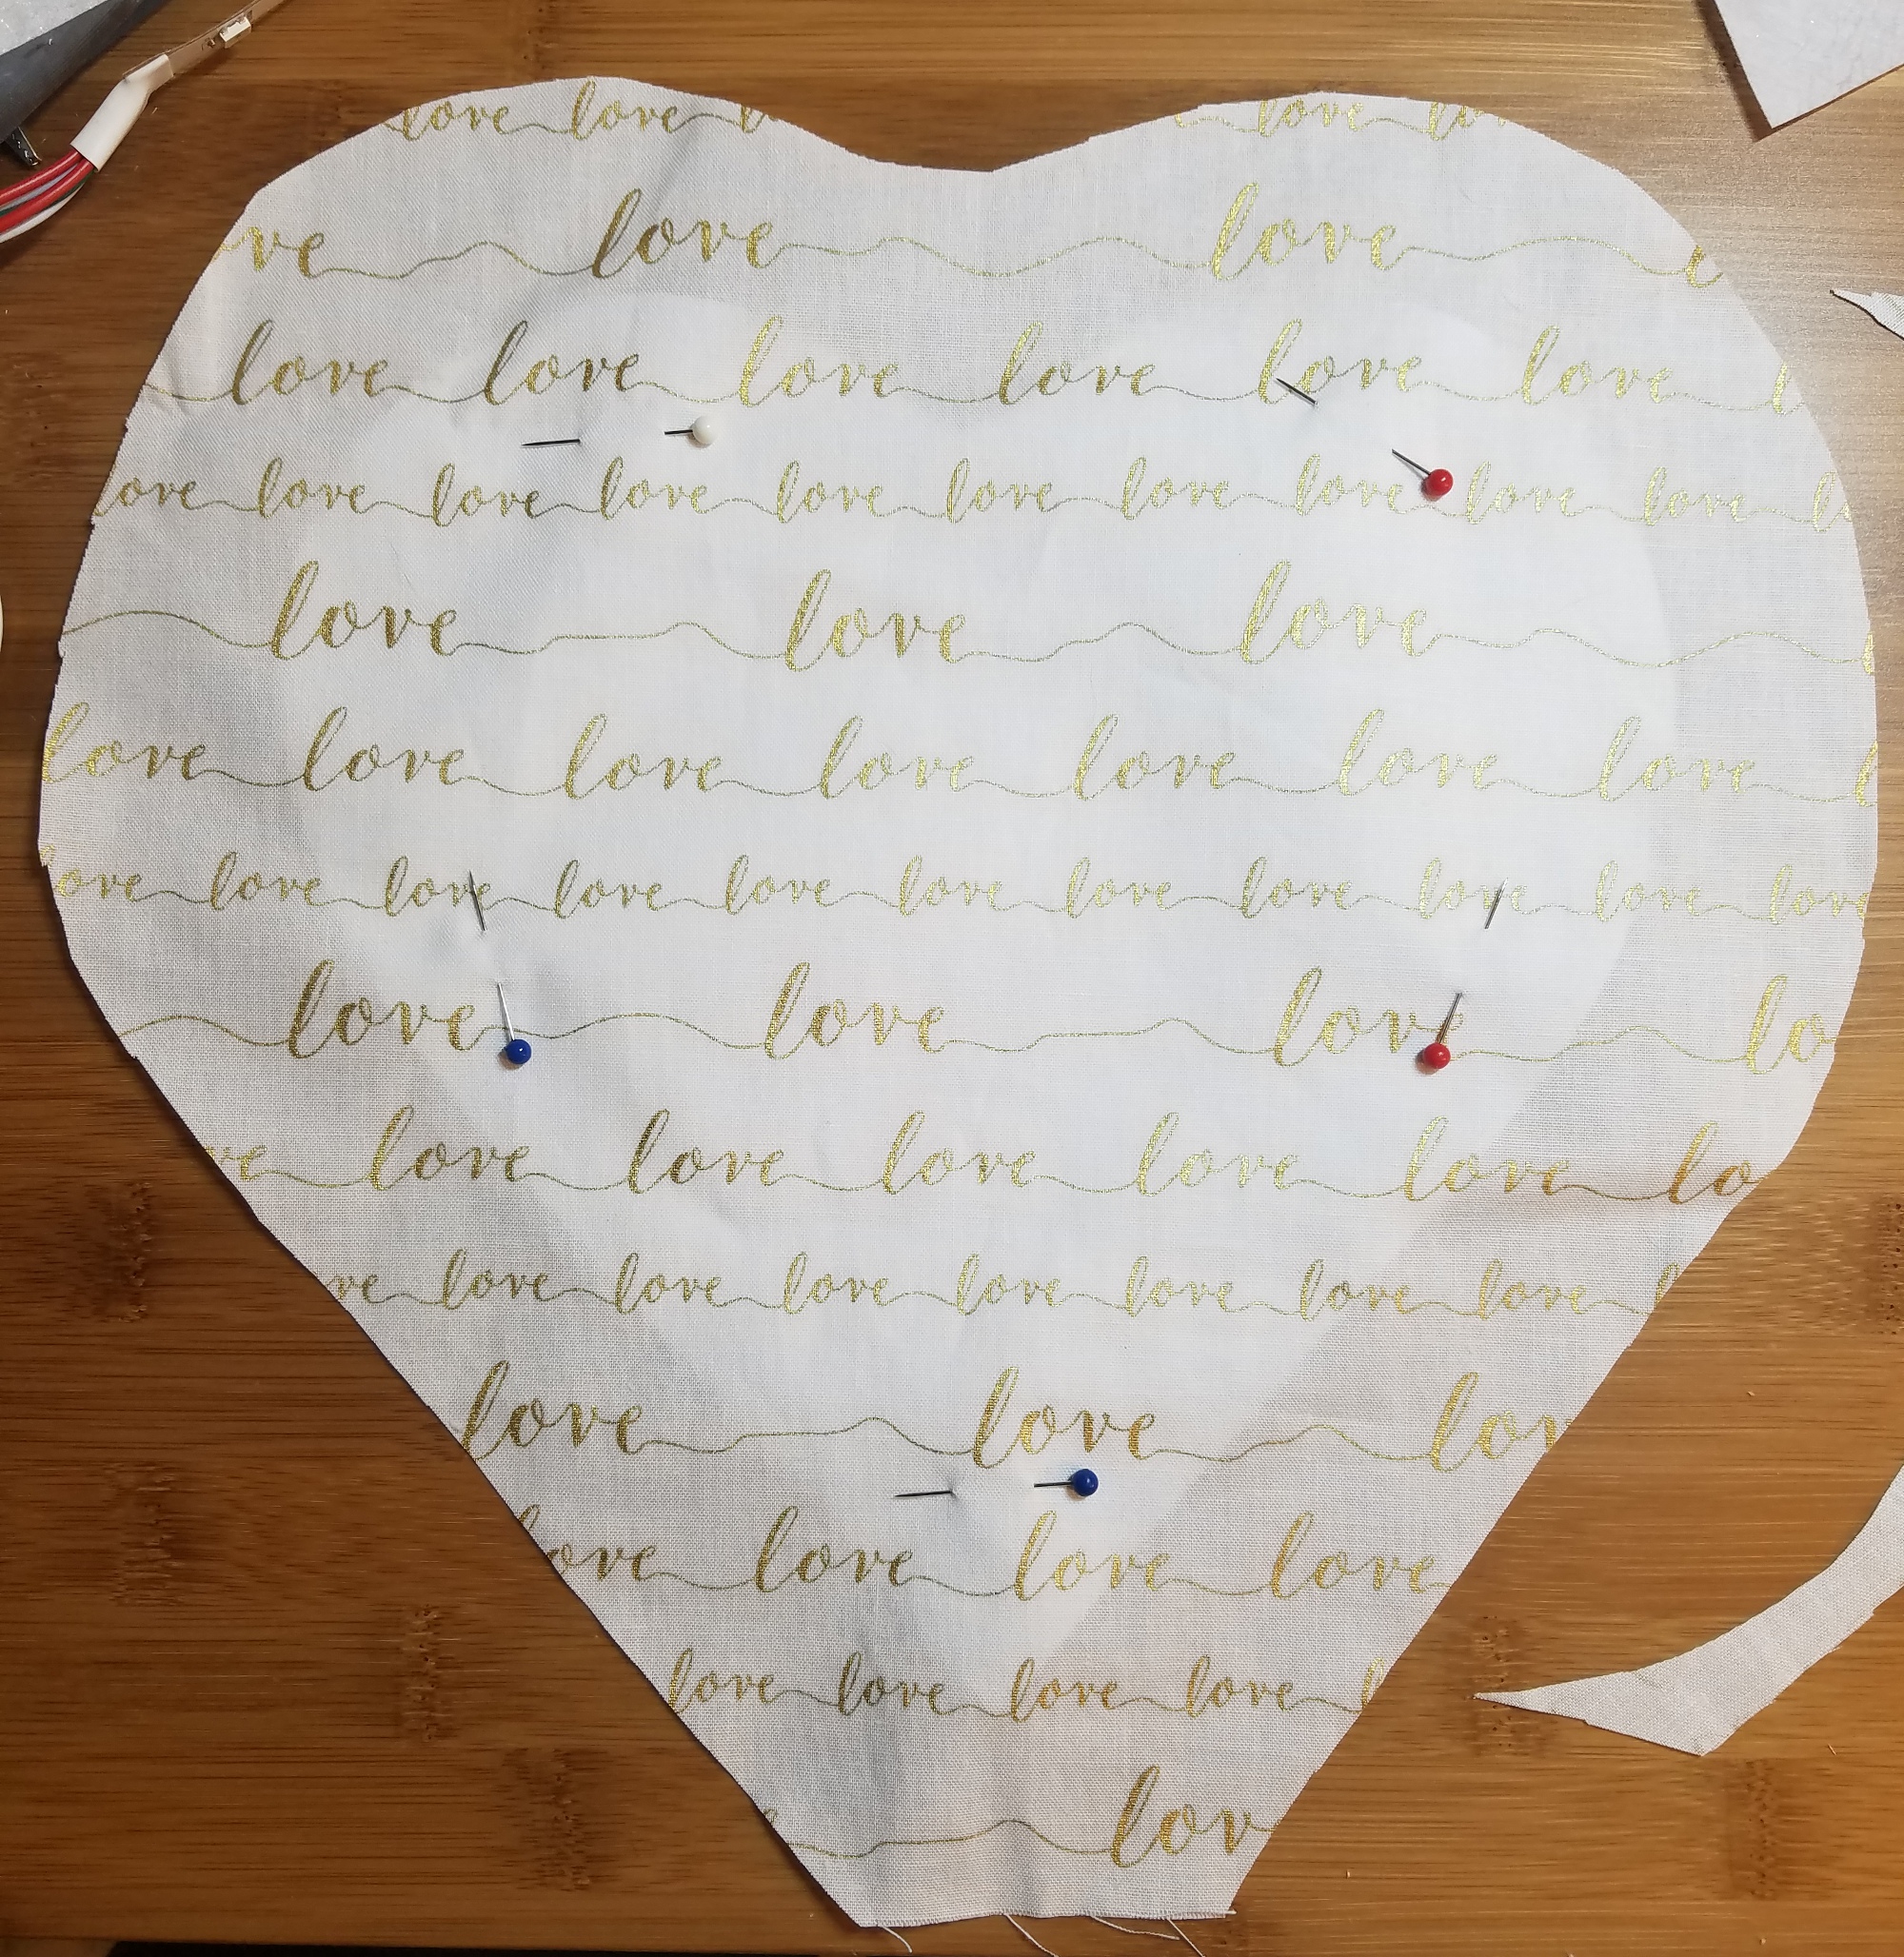 love love l love lo
ve love love
love love love love love love l
ove love love love love love love love love love l
love love love
love love love love love love love l
ove love love love love love love love love love love
love love love lo
ve love love love love love lo
ve love love love love love love love l
love love lov
ove love love love
love love love love l
lov